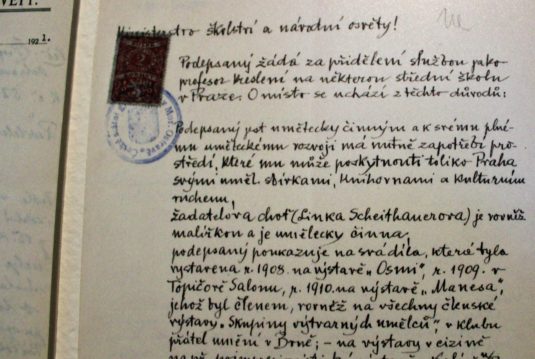 192 1.
Ministerstvo školství a národní osvěty!
Podepsaný žádá za přidělení službou jako
profesor kreslení na některou střední školu
v Praze. O místo se uchází z těchto důvodů:
Podepsaný jest umělecky činným a k svému plné-
mu uměleckému rozvoji má nutně zapotřebí pro-
středí, které mu může poskytnouti toliko Praha
svými uměl. sbírkami, knihovnami a kulturním
ruchem,
žadatelova choť (Linka Scheithauerova) je rovněž
malířkou a je umělecky činna,
podepsaný poukazuje na svá díla, která byla
vystavena r. 1908. na výstavě „Osmi", r. 1909. v
Topičově Salonu, r. 1910. na výstavě „Manesa",
jehož byl členem, rovněž na všechny členské
výstavy „Skupiny výtvarných umělců", v Klubu
přátel umění v Brně; – na výstavy v cizině